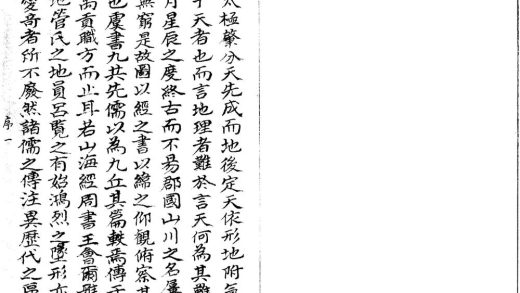 太極肇分天先成而地後定天依形地附氣
于天者也而言地理者難於言天何為其難
月星辰之度終古而不易郡國山川之名屢
無窮是故圖以經之書以緯之仰觀俯察其
也虞書九共先儒以為九丘其篇軼焉傳于
禹貢職方而止耳若山海經周書王會爾雅
地管氏之地員呂覽之有始鴻烈之墜形亦
愛奇者所不廢然諸儒之傳注異歷代之
序一